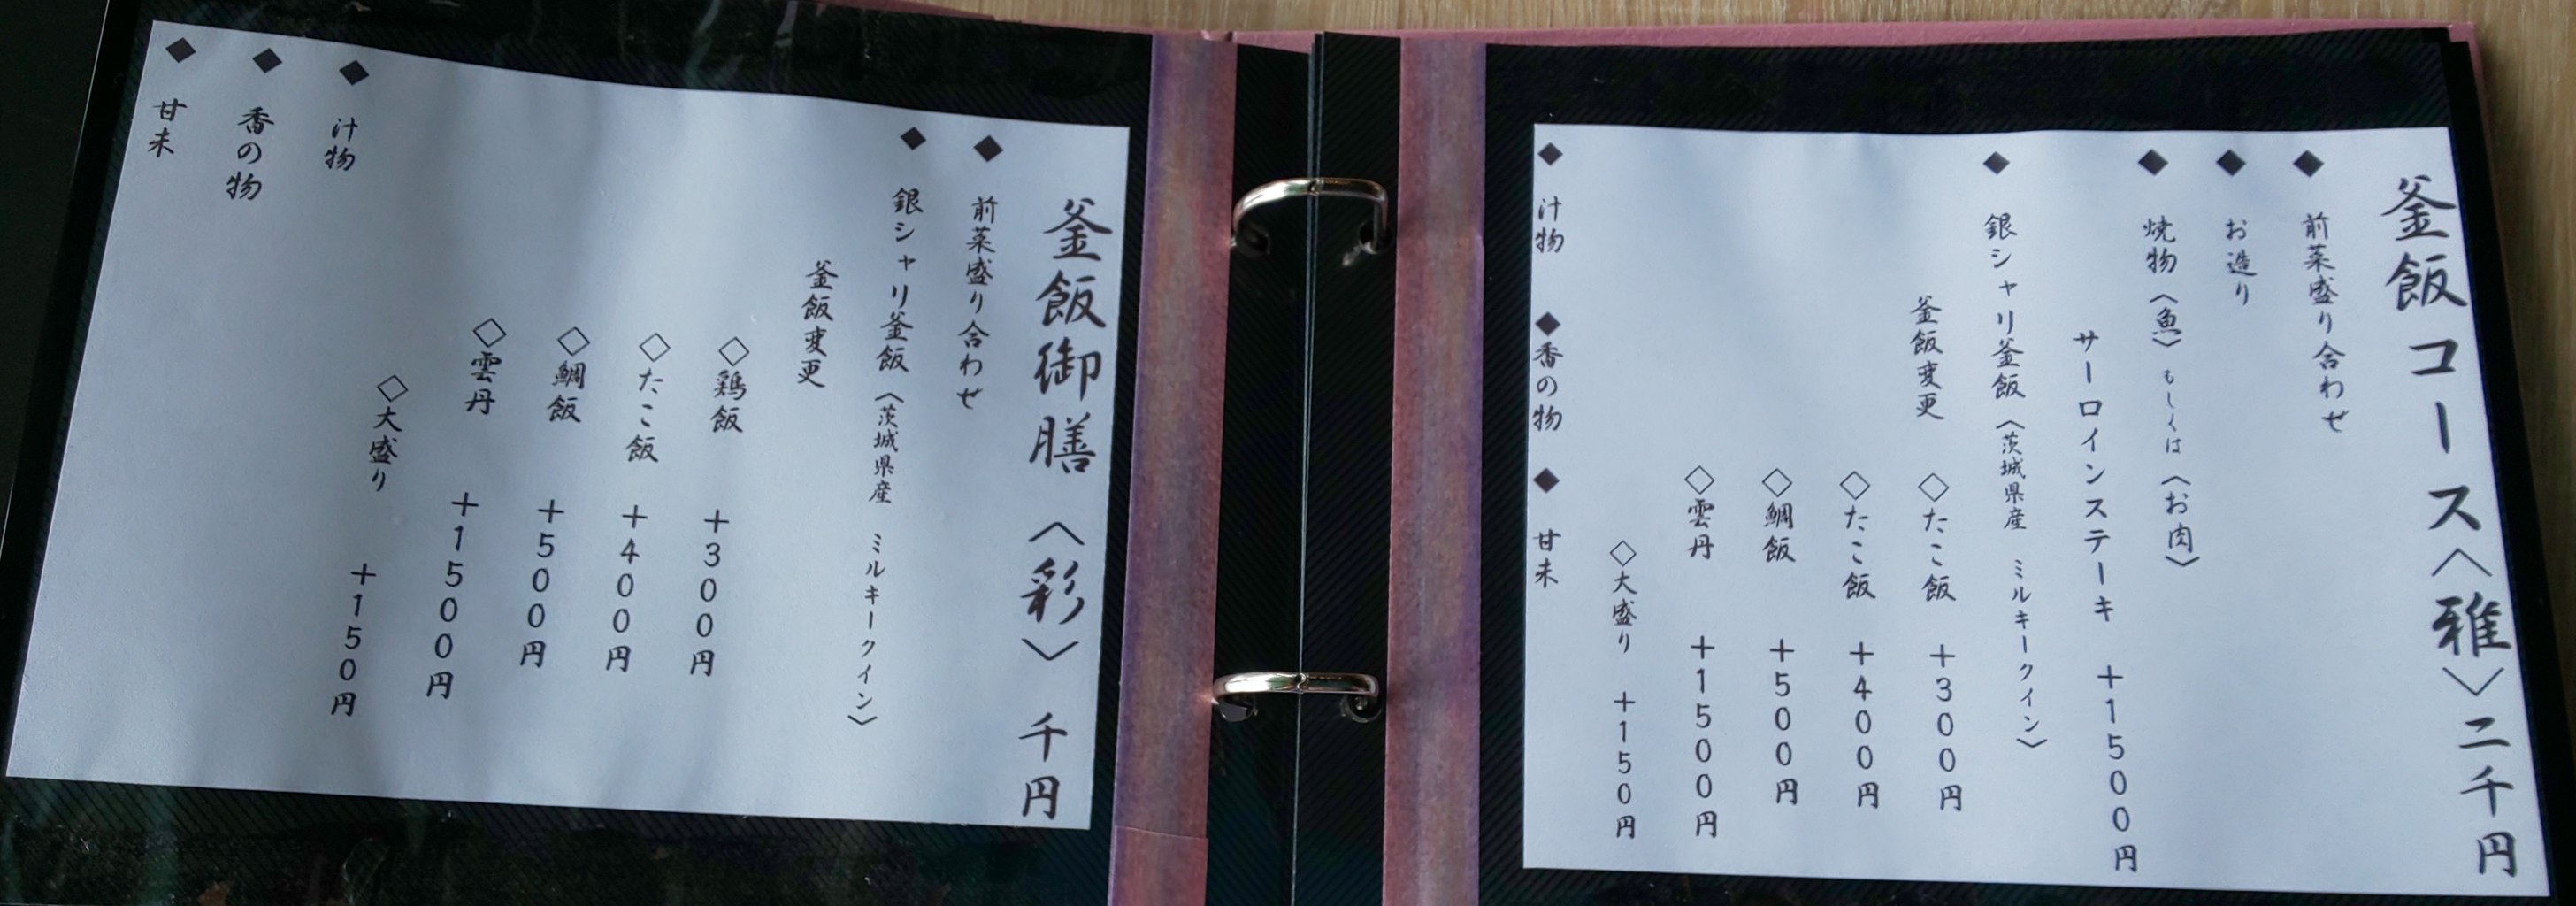 釜飯コース〈雅〉二千円
◆ 前菜盛り合わせ
◆ お造り
◆ 焼物〈魚〉もしくは〈お肉〉
サーロインステーキ ＋１５００円
◆ 銀シャリ釜飯〈茨城県産 ミルキークイン〉
釜飯変更 ◇たこ飯 ＋３００円
◇たこ飯 ＋４００円
◇鯛飯 ＋５００円
◇雲丹 ＋１５００円
◇大盛り ＋１５０円
◆ 汁物 ◆香の物 ◆ 甘未
釜飯御膳〈彩〉千円
◆ 前菜盛り合わせ
◆ 銀シャリ釜飯〈茨城県産 ミルキークイン〉
釜飯変更
◇鶏飯 ＋３００円
◇たこ飯 ＋４００円
◇鯛飯 ＋５００円
◇雲丹 ＋１５００円
◇大盛り ＋１５０円
◆ 汁物
◆ 香の物
◆ 甘未